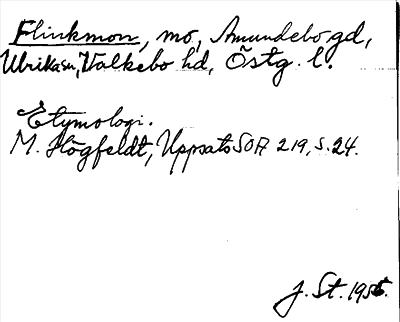 Flinkmon, mo, Amundebo gd,
Ulrikasn, Valkebo hd, Östg. l.
Etymologi.
M. Högfeldt, Uppsats SOA 219, s. 24.
J. St. 1955.